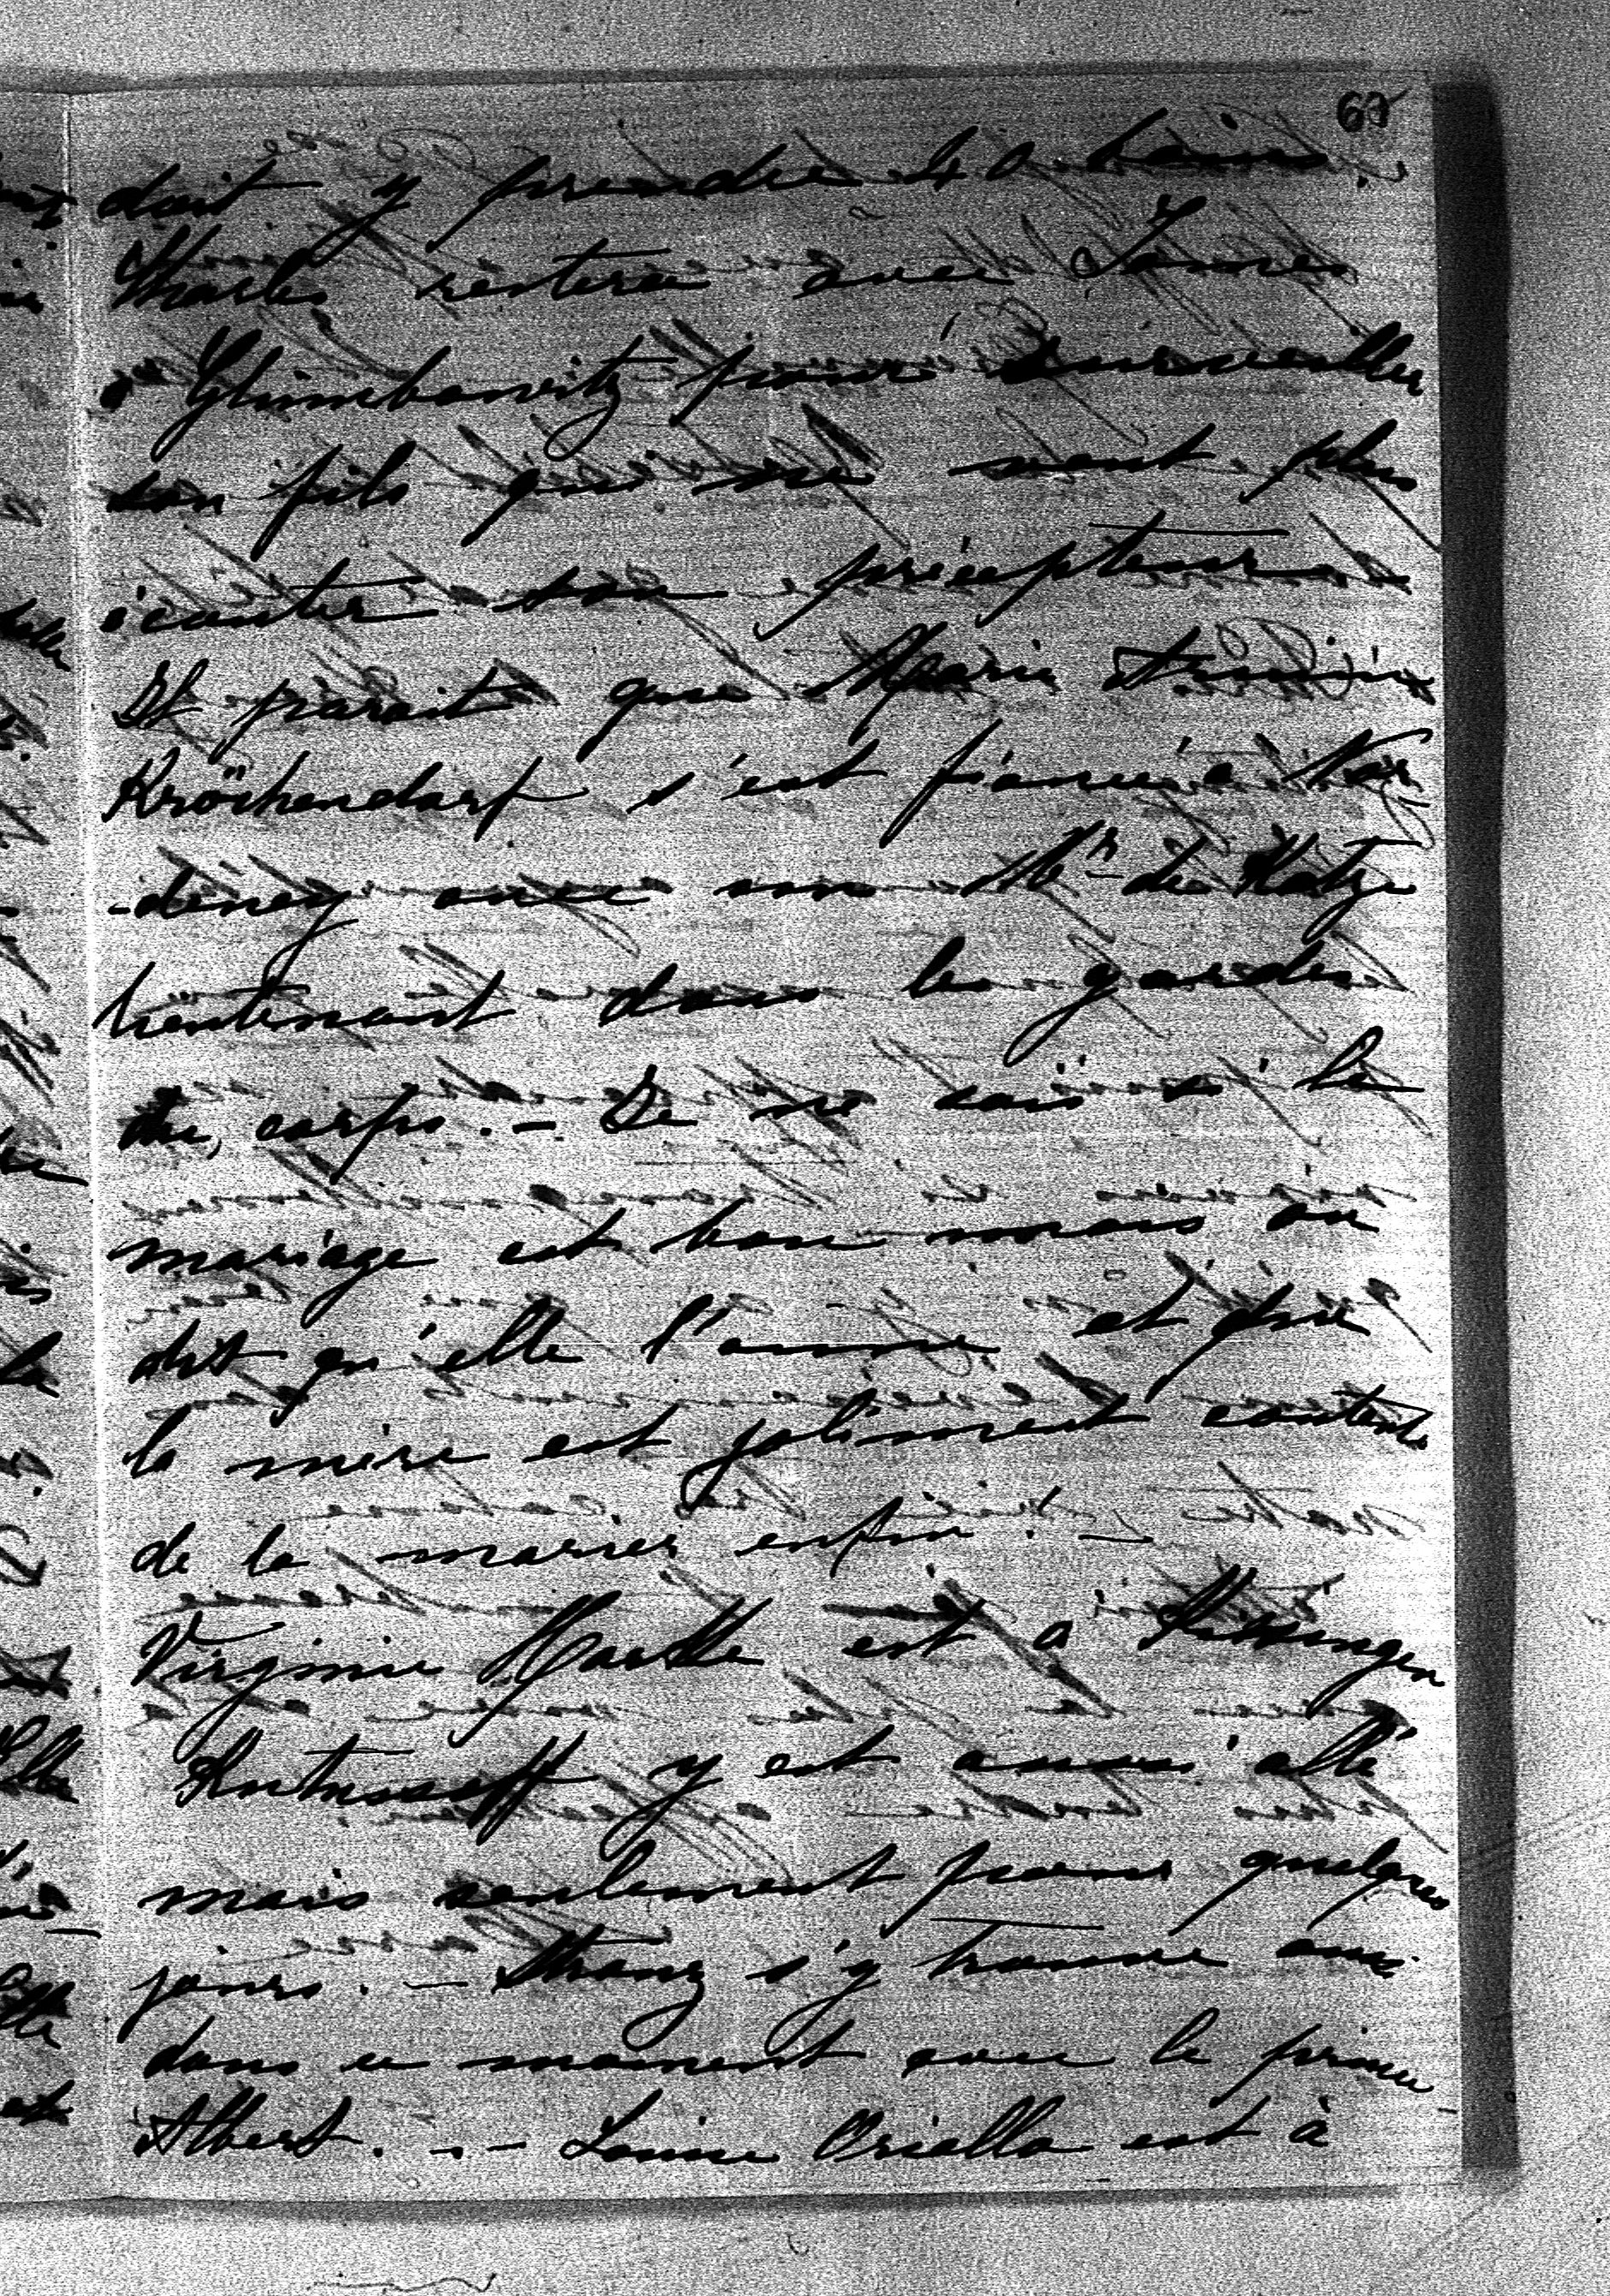 65
doit y prendre 40 bains
Charles restera avec Louise
à Glumbowitz pour surveiller
son fils qui ne veut plus
écouter son précepteur
Il parait que Marie Arnim
Kröchendorf s'est fiancée à Nor
-deney avec un Mr de Katze
lieutenant dans les gardes
du corps. - Je ne sais si le
mariage est bon mais on
dit qu'elle l'aime et que
la mère est joliment contente
de la marier enfin! -
Virginie est à Kissingen
Kutusoff y est aussi allé
mais seulement pour quelques
jours. - Stranz s'y trouve aussi
dans ce moment avec le prince
Albert. - - Louise Oriolla est à